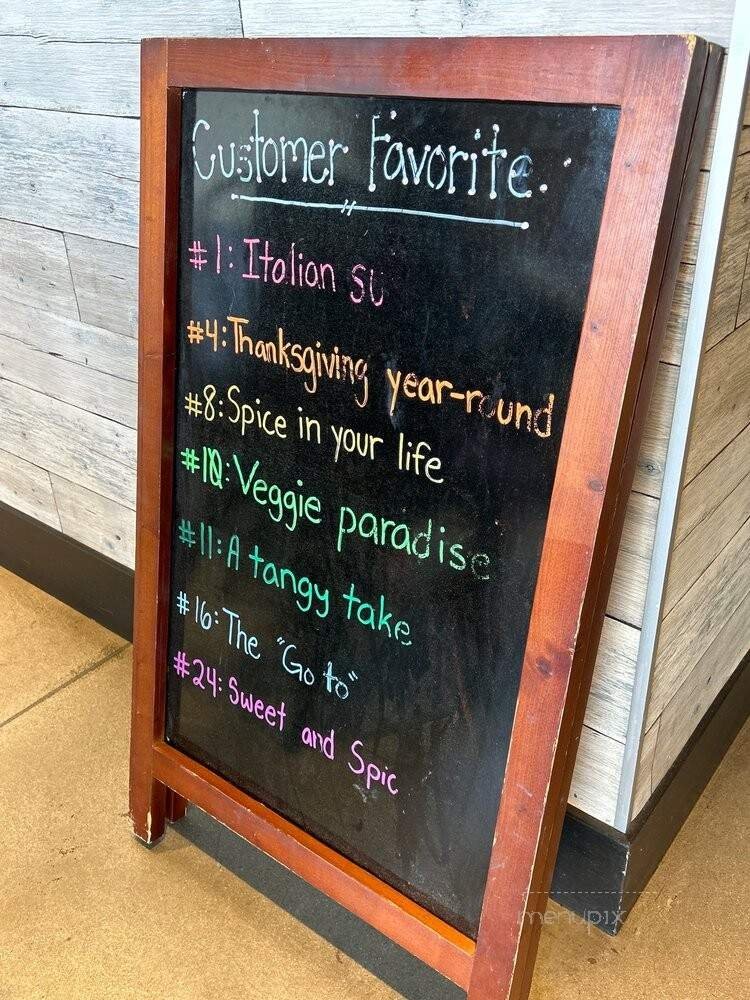 Customer Favorite:
#1: Italian su
#4: Thanksgiving year-round
#8: Spice in your life
#10: Veggie paradise
#11: A tangy take
#16: The "Go to"
#24: Sweet and Spic
menupix